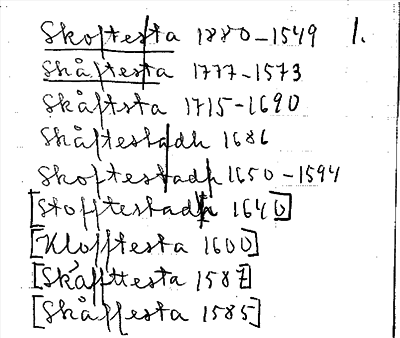 Skoftesta 1880-1549 1.
Skåftesta 1777-1573
Skåftsta 1715-1690
Skåftestadh 1686
Skoftestadh 1650-1594
[Stofftestadh 1640]
[Klofftesta 1600]
[Skåffttesta 1587]
[Skåffesta 1585]